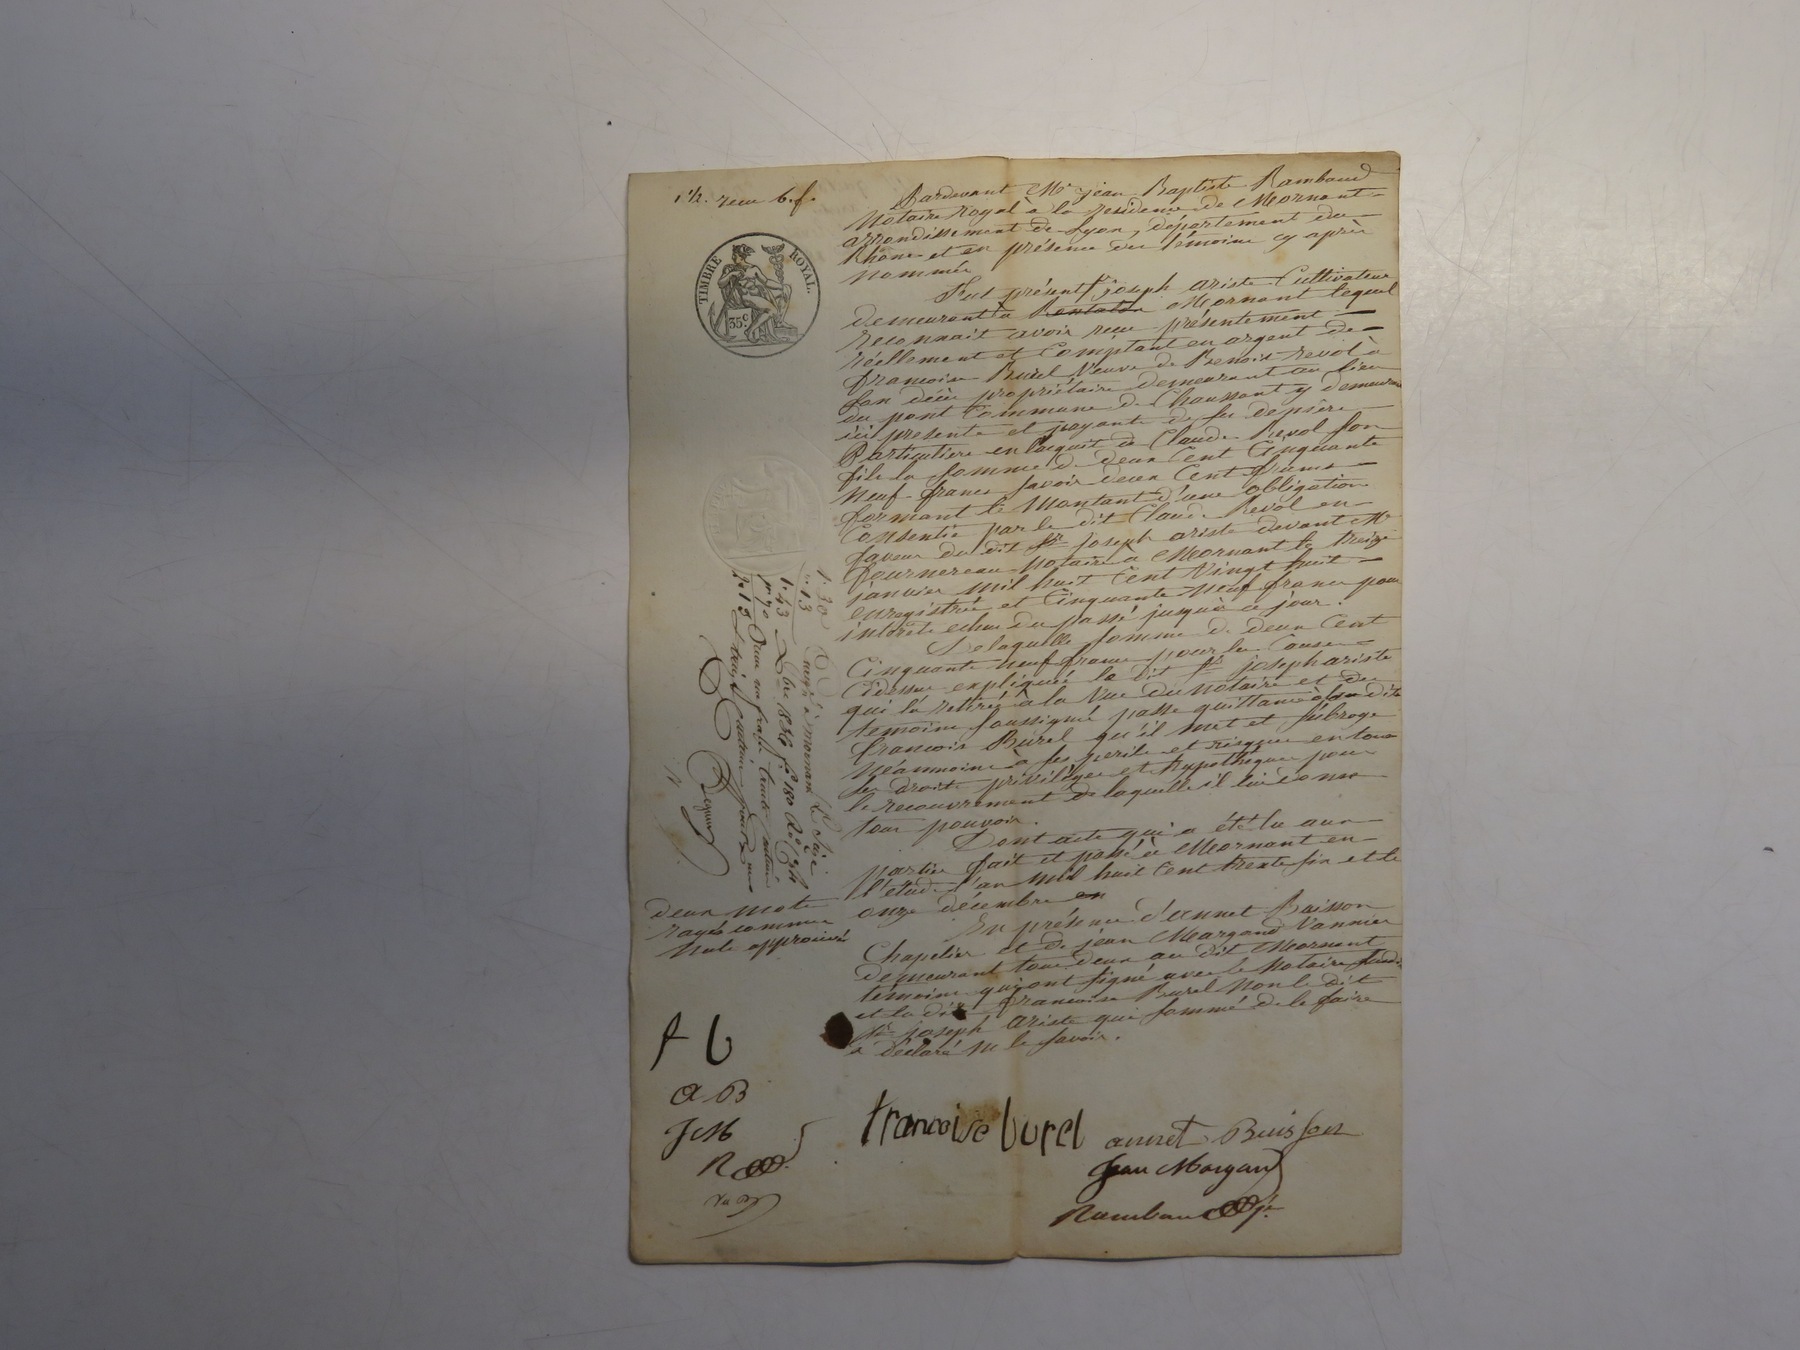 1 1/2. reçu 6. f.
TIMBRE ROYAL.
35 c.
Pardevant Me jean Baptiste Rambaud
Notaire royal à la residence de Mornant
arrondissement de Lyon, département du
Rhône et en présence des témoins cy après
nommés
Fut présent sr joseph ariste Cultivateur
demeurant à Mornant lequel
reconnait avoir reçu présentement
réellement et Comptant en argent de
francoise Burel Veuve de Benoit revol à
son décès propriétaire demeurant au lieu
du pont Commune de Chaussant y demeurant
ici présente et payante de ses deniers
Particuliers en l'acquit de Claude Revol son
fils la somme de deux Cent Cinquante
Neuf francs savoir deux Cent francs
formant le Montant d'une obligation
Consentie par le dit Claude Revol en
faveur du dit sr joseph ariste devant Me
fournereau notaire à Mornant le treize
janvier mil huit Cent Vingt huit
enregistrée et Cinquante Neuf francs pour
intérêts echus du passé jusqu'à ce jour.
De laquelle somme de deux Cent
Cinquante neuf francs pour les Causes
Cidessus expliquées le dit sr joseph ariste
qui l'a retirée à la Vue du notaire et des
temoins soussignés passe quittance à la dite
francoise Burel qu'il met et subroge
Néanmoins à ses perils et risques en tous
ses droits priviléges et hypothèques pour
le recouvrement de laquelle il lui donne
tous pouvoirs.
Dont acte qui a été lu aux
parties fait et passé à Mornant en
l'étude l'an mil huit Cent trente six et le
onze décembre
En présence d'annet Buisson
Chapelier et de jean Margand Vannier
demeurant tous deux au dit Mornant
témoins qui ont signé avec le Notaire
et la dite francoise Burel Non le dit
sr joseph Ariste qui sommé de le faire
a déclaré ne le savoir.
1. 30
13
1. 43
70
2. 13
Enregé à mornant
1836 fo 180
Reçu un franc trente centimes
deux mots
rayés comme
nuls approuvés
f b
A B
J M
R
francoise burel
annet Buisson
Jean Margand
Rambaud